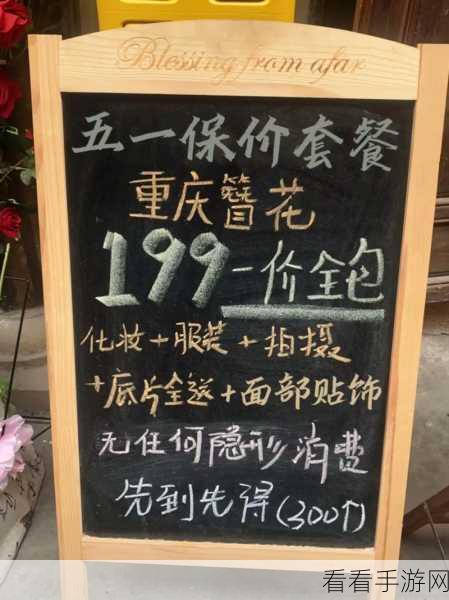 Blessing from afar
五一保价套餐
重庆簪花
199一价全包
化妆+服装+拍摄
+底片全送+面部贴饰
无任何隐形消费
先到先得(300个)
看看手游网